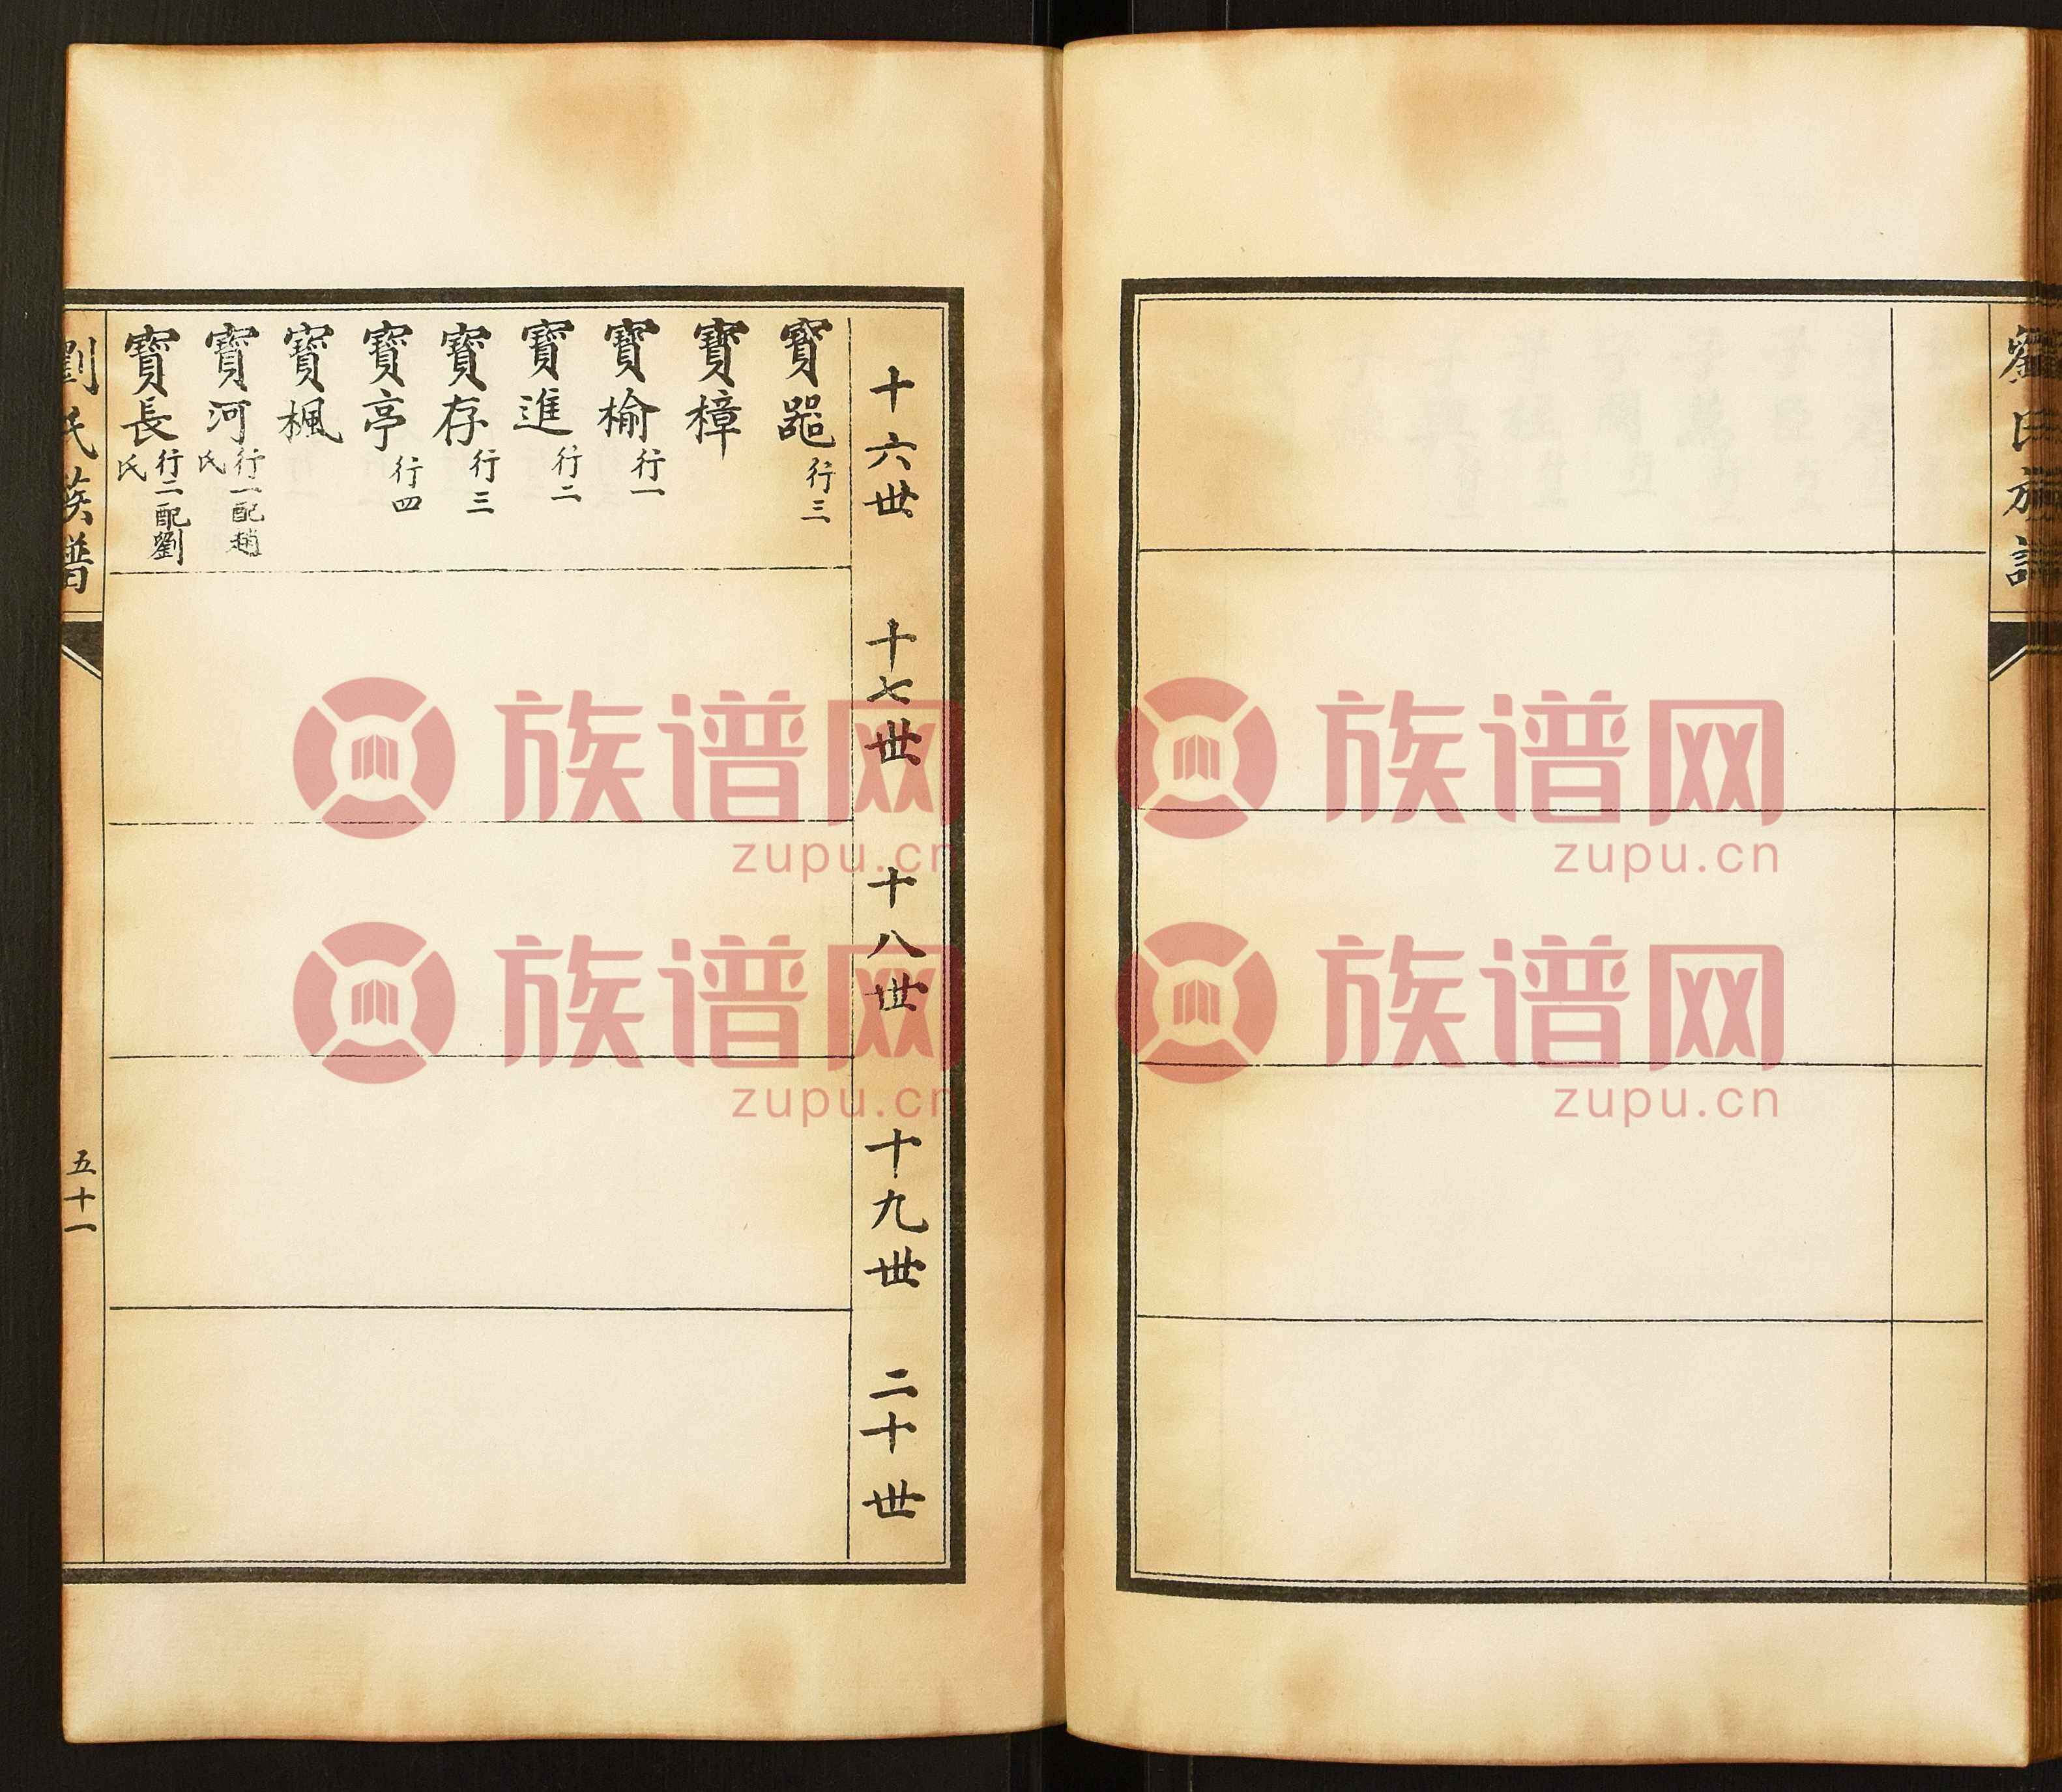 劉氏族譜
十六世
十七世
十八世
十九世
二十世
寶㗊 行三
寶樟
寶榆 行一
寶進 行二
寶存 行三
寶亭 行四
寶楓
寶河 行一配趙氏
寶長 行二配劉氏
劉氏族譜
五十一
族谱网
zupu.cn
族谱网
zupu.cn
族谱网
zupu.cn
族谱网
zupu.cn